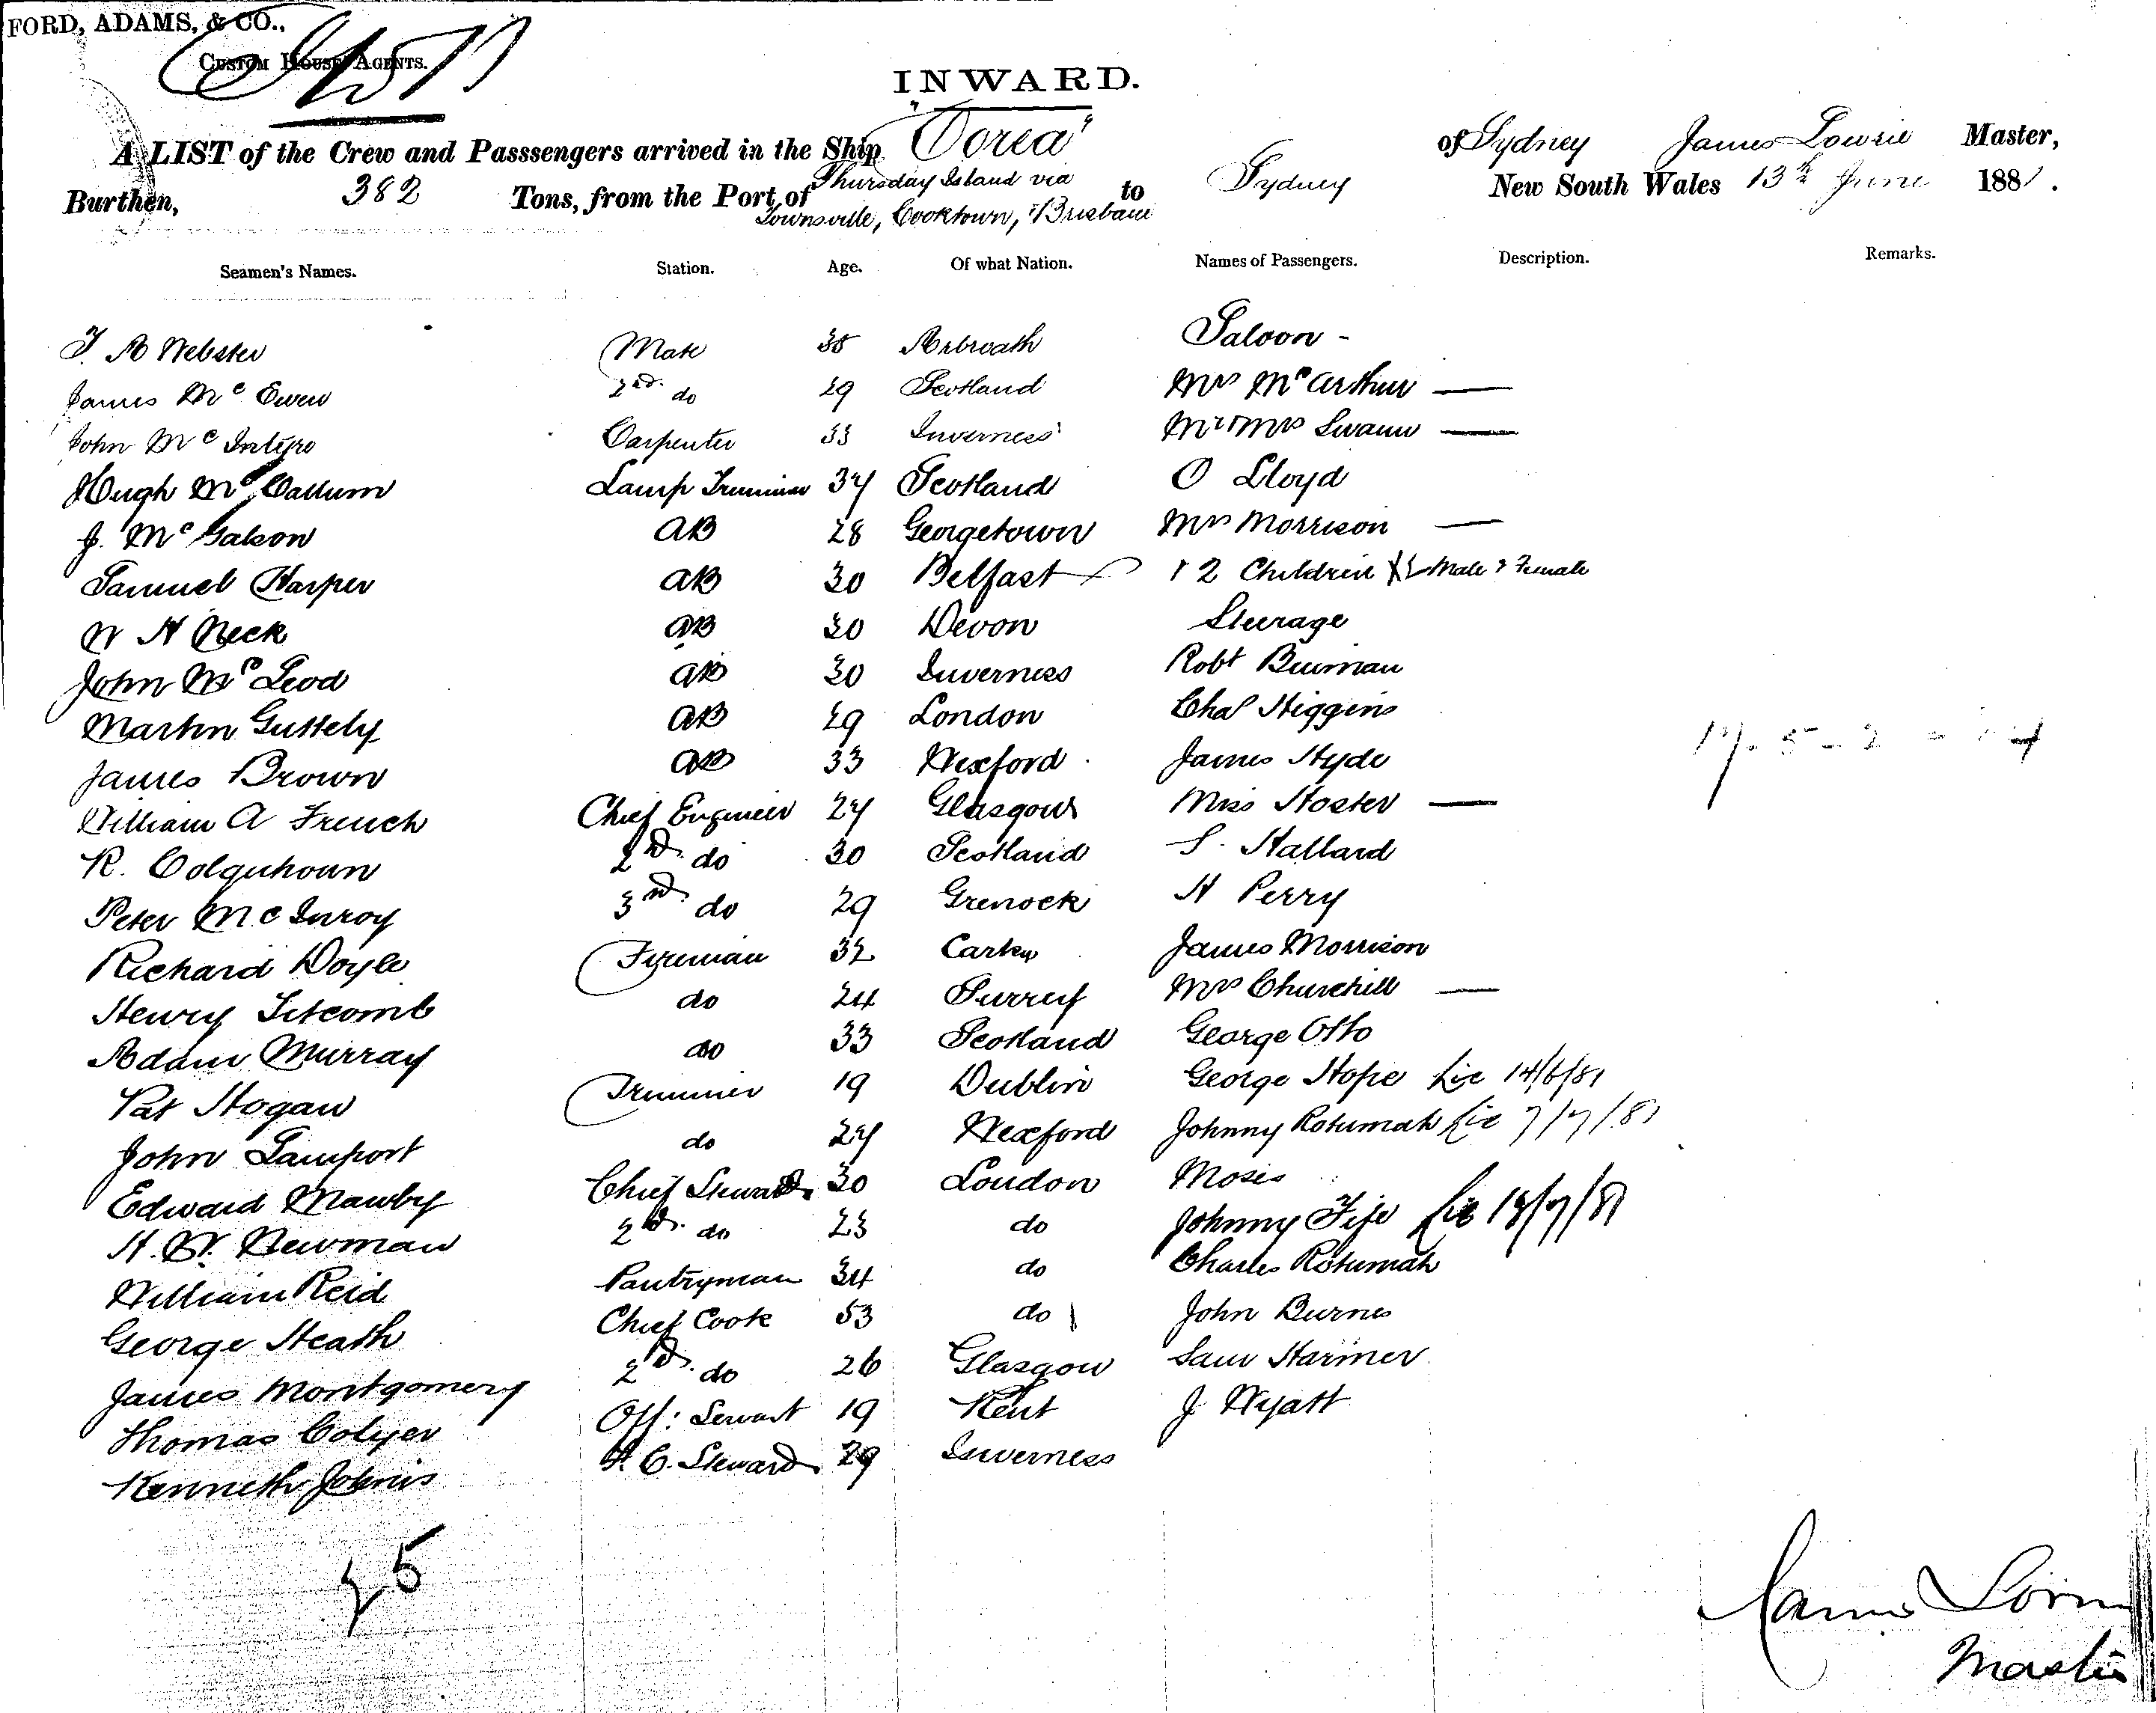 FORD, ADAMS, & CO.,
CUSTOM HOUSE AGENTS.
INWARD.
A LIST of the Crew and Passsengers arrived in the Ship "Corea" of Sydney James Lowrie Master,
Burthen, 382 Tons, from the Port of Thursday Island via Townsville, Cooktown, & Brisbane to Sydney New South Wales 13th June 1881.
Seamen's Names. Station. Age. Of what Nation. Names of Passengers. Description. Remarks.
Saloon -
Webster Mate 35 Arbroath
James McEwen 2nd do 29 Scotland Mrs McArthur —
John McIntyre Carpenter 33 Inverness Mr & Mrs Swann —
Hugh McCallum Lamp Trimmer 34 Scotland O Lloyd
J. McGalson AB 28 Georgetown Mrs Morrison —
Samuel Harper AB 30 Belfast & 2 Children Male & Female
W H Neck AB 30 Devon Steerage
John McLeod AB 30 Inverness Robt
Martin Guttely AB 29 London Chas Higgins
James Brown AB 33 Wexford James Hyde
William A French Chief Engineer 27 Glasgow Miss Hoster —
R. Colquhoun 2nd do 30 Scotland S. Hallard
Peter McInroy 3rd do 29 Grenock H Perry
Richard Doyle Fireman 32 James Morrison
Henry Titcomb do 24 Surrey Mrs Churchill —
Adam Murray do 33 Scotland George Otto
Pat Hogan Trimmer 19 Dublin George Hope Lic 14/6/81
John Lamport do 27 Wexford Johnny Rotumah Lic 7/7/81
Edward Mawby Chief Steward 30 London Moses
H. W. Newman 2nd do 23 do Johnny Fife Lic 18/7/81
William Reid Pantryman 34 do Charles Rotumah
George Heath Chief Cook 53 do John Burnes
James Montgomery 2nd do 26 Glasgow Sam Harmer
Thomas Colyer Off: Servant 19 Kent J Wyatt
Kenneth Johnis F. C. Steward 29 Inverness
25
James Lowrie
Master